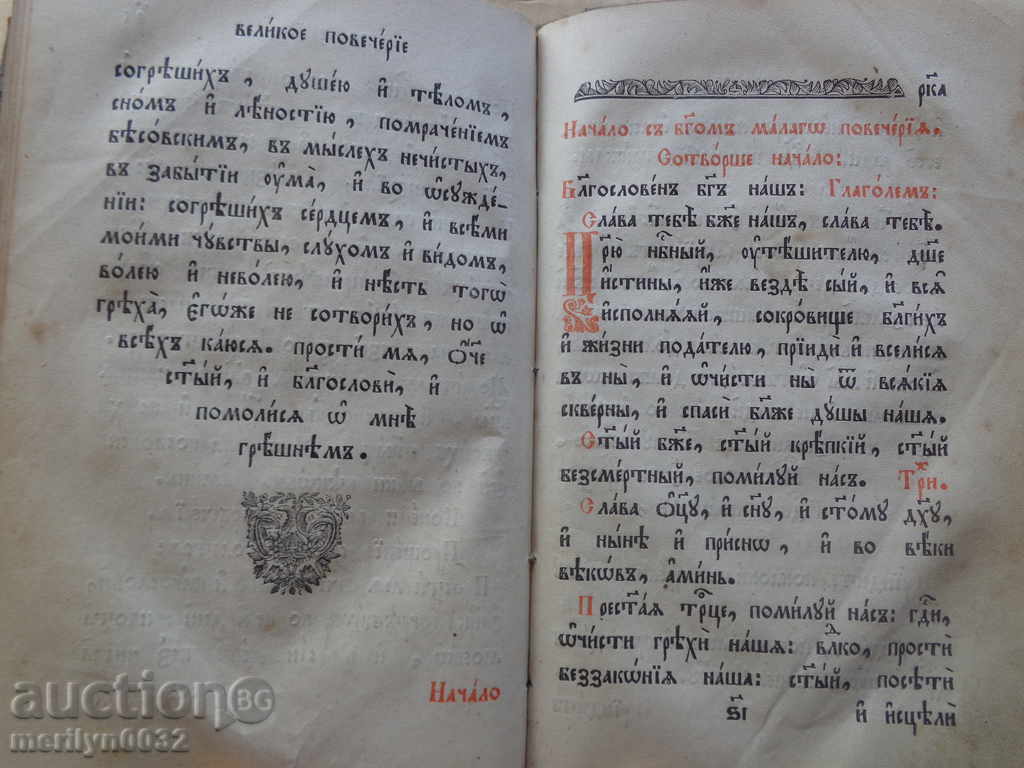 Вели́кое повече́рїе
согрѣши́хъ, душе́ю и҆ тѣ́ломъ,
сно́мъ и҆ лѣ́ностїю, помраче́нїемъ
бѣсо́вскимъ, въ мы́слехъ нечи́стыхъ,
въ забы́тїи оу҆ма̀, и҆ во ѡ҆сꙋжде́-
нїи: согрѣши́хъ се́рдцемъ, и҆ всѣ́ми
мои́ми чꙋ́вствы, слꙋ́хомъ и҆ ви́домъ,
во́лею и҆ нево́лею, и҆ нѣ́сть тогѡ̀
грѣха̀, є҆гѡ́же не сотвори́хъ, но ѡ҆
всѣ́хъ ка́юсѧ. прости́ мѧ, ѻ҆́ч҃е
ст҃ы́й, и҆ бл҃гословѝ, и҆
помоли́сѧ ѡ҆ мнѣ̀
грѣ́шнѣмъ.
Нача́ло
рк҃а
Нача́ло съ бг҃омъ ма́лагѡ повече́рїѧ,
Сотво́рше нача́ло:
Бл҃гослове́нъ бг҃ъ на́шъ: Глаго́лемъ:
Сла́ва тебѣ̀ бж҃е на́шъ, сла́ва тебѣ̀.
Цр҃ю̀ нбⷭ҇ный, оу҆тѣ́шителю, дш҃е
и҆́стины, и҆́же вездѣ̀ сы́й, и҆ всѧ̑
и҆сполнѧ́ѧй, сокро́вище бл҃ги́хъ
и҆ жи́зни пода́телю, прїидѝ и҆ всели́сѧ
въ ны̀, и҆ ѡ҆чи́сти ны̀ ѿ всѧ́кїѧ
скве́рны, и҆ спасѝ бл҃же дꙋ́шы на́шѧ.
Ст҃ы́й бж҃е, ст҃ы́й крѣ́пкїй, ст҃ы́й
безсме́ртный, поми́лꙋй на́съ. Три́.
Сла́ва ѻ҆ц҃ꙋ̀, и҆ сн҃ꙋ, и҆ ст҃о́мꙋ дх҃ꙋ,
и҆ ны́нѣ и҆ при́снѡ, и҆ во вѣ́ки
вѣкѡ́въ, а҆ми́нь.
Прест҃а́ѧ трⷪ҇це, поми́лꙋй на́съ: гдⷭ҇и,
ѡ҆чи́сти грѣхѝ на́шѧ: влⷣко, простѝ
беззакѡ́нїѧ на̑ша: ст҃ы́й, посѣтѝ
ѕ҃і и҆ и҆сцѣлѝ
auctionBG
merilyn0032